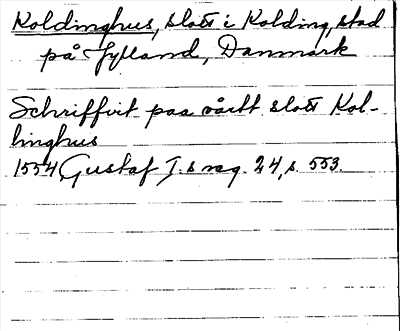 Koldinghus, slott i Kolding, stad
på Jylland, Danmark
Schriffvit paa vårtt slott Kol-
linghus
1554, Gustaf I.s reg. 24, s. 553.